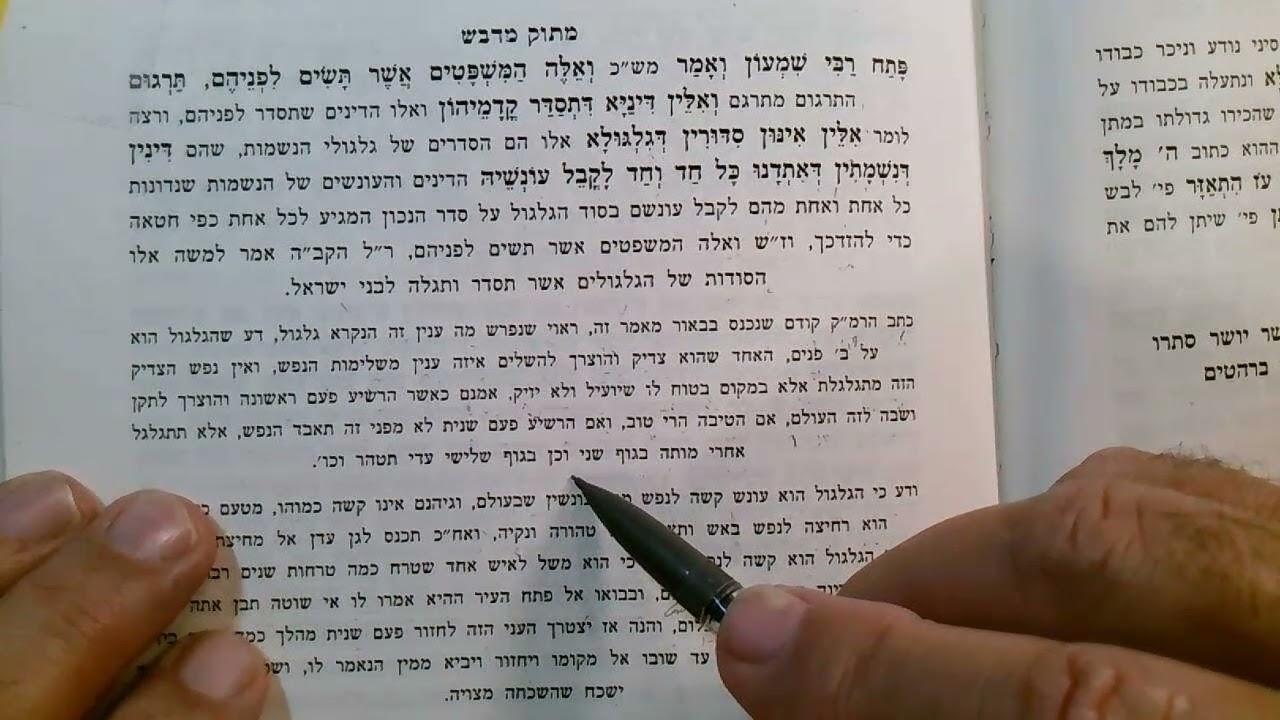 מתוק מדבש
פָּתַח רַבִּי שִׁמְעוֹן וְאָמַר מש״כ וְאֵלֶּה הַמִּשְׁפָּטִים אֲשֶׁר תָּשִׂים לִפְנֵיהֶם, תַּרְגּוּם
התרגום מתרגם וְאִלֵּין דִּינַיָּא דִּתְסַדַּר קֳדָמֵיהוֹן ואלו הדינים שתסדר לפניהם, ורצה
לומר אִלֵּין אִינּוּן סִדּוּרִין דְּגִלְגּוּלָא אלו הם הסדרים של גלגולי הנשמות, שהם דִּינִין
דְּנִשְׁמָתִין דְּאִתְדָנוּ כָּל חַד וְחַד לָקֳבֵל עוֹנְשֵׁיהּ הדינים והעונשים של הנשמות שנדונות
כל אחת ואחת מהם לקבל עונשם בסוד הגלגול על סדר הנכון המגיע לכל אחת כפי חטאה
כדי להזדכך, וז״ש ואלה המשפטים אשר תשים לפניהם, ר״ל הקב״ה אמר למשה אלו
הסודות של הגלגולים אשר תסדר ותגלה לבני ישראל.
כתב הרמ״ק קודם שנכנס בבאור מאמר זה, ראוי שנפרש מה ענין זה הנקרא גלגול, דע שהגלגול הוא
על ב׳ פנים, האחד שהוא צדיק והוצרך להשלים איזה ענין משלימות הנפש, ואין נפש הצדיק
הזה מתגלגלת אלא במקום בטוח לו שיועיל ולא יזיק, אמנם כאשר הרשיע פעם ראשונה והוצרך לתקן
ושבה לזה העולם, אם הטיבה הרי טוב, ואם הרשיע פעם שנית לא מפני זה תאבד הנפש, אלא תתגלגל
אחרי מותה בגוף שני וכן בגוף שלישי עדי תטהר וכו׳.
ודע כי הגלגול הוא עונש קשה לנפש שבעולם, וגיהנם אינו קשה כמוהו, מטעם
הוא רחיצה לנפש באש טהורה ונקיה, ואח״כ תכנס לגן עדן אל מחיצת
הגלגול הוא קשה כי הוא משל לאיש אחד שטרח כמה טרחות שנים
ובבואו אל פתח העיר ההיא אמרו לו אי שוטה תבן אתה
והנה אז יצטרך העני הזה לחזור פעם שנית מהלך
עד שובו אל מקומו ויחזור ויביא ממין הנאמר לו,
ישכח שהשכחה מצויה.
סיני נודע וניכר כבודו
ונתעלה בכבודו על
שהכירו גדולתו במתן
ההוא כתוב ה׳ מָלָךְ
עֹז הִתְאַזָּר פי׳ לבש
פי׳ שיתן להם את
יושר סתרו
ברהטים